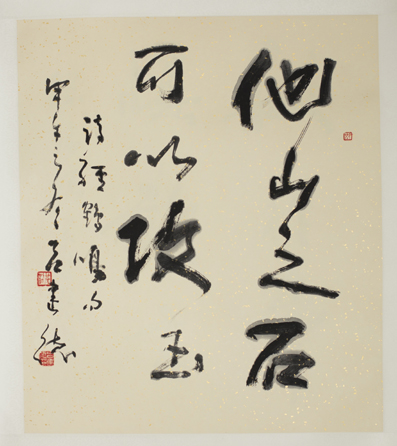 他山之石
可以攻玉
詩經鶴鳴句
甲午之 建